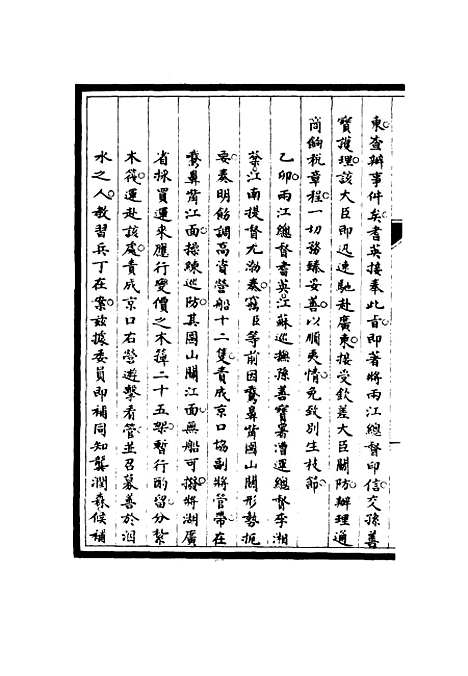 東查辦事件矣耆英接奉此旨即著將兩江總督印信交孫善
寶護理該大臣即迅速馳赴廣東接受欽差大臣關防辦理通
商餉稅章程一切務臻妥善以順夷情免致別生枝節
乙卯兩江總督耆英江蘇巡撫孫善寶署漕運總督李湘
棻江南提督尤渤奏竊臣等前因鵞鼻觜圌山關形勢扼
要奏明飭調高資營船十二隻責成京口協副將管帶在
鵞鼻觜江面操練巡防其圌山關江面無船可撥將湖廣
省採買運來應行變價之木簰二十五架暫行酌留分紮
木筏運赴該處責成京口右營遊擊看管並召募善於泅
水之人教習兵丁在案茲據委員即補同知龔潤森候補